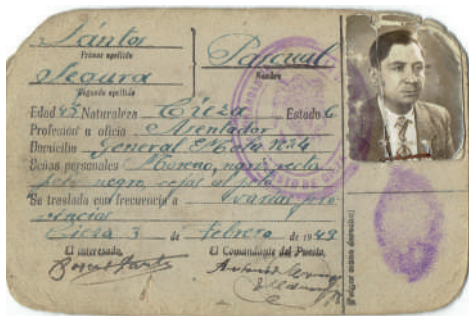 Santos
Primer apellido
Pascual
Nombre
Segura
Segundo apellido
Edad 45 Naturaleza Cieza Estado C
Profesión u oficio Asentador
Domicilio General Mola Nº 4
Señas personales Moreno, nariz recta
pelo negro, cejas al pelo
Se traslada con frecuencia a varias pro
vincias
Cieza 3 de febrero de 1949
El interesado, El Comandante del Puesto,
(Pulgar mano derecha)